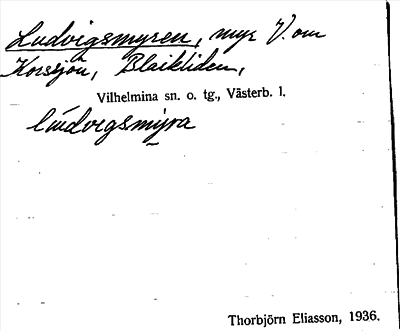 Ludvigsmyren, myr V. om
Korssjön, Blaikliden,
Vilhelmina sn. o. tg., Västerb. l.
lúdvegsmyra
Thorbjörn Eliasson, 1936.